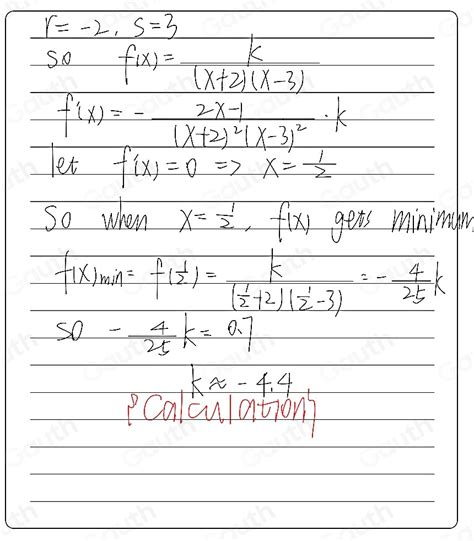 r = -2, s = 3
so f(x) = k / (x+2)(x-3)
f'(x) = - 2x-1 / (x+2)²(x-3)² · k
let f'(x) = 0 => x = 1/2
so when x = 1/2, f(x) gets minimum
f(x)min = f(1/2) = k / (1/2+2)(1/2-3) = - 4/25 k
so - 4/25 k = 0.7
k ≈ -4.4
{Calculation}